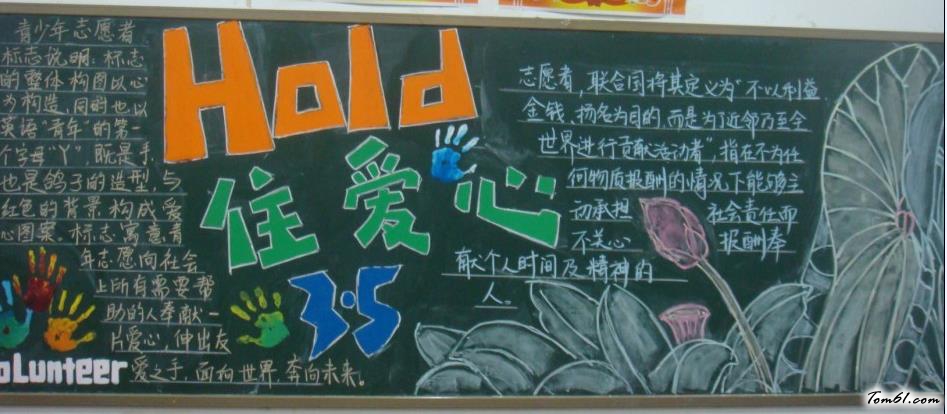 青少年志愿者
标志说明:标志
的整体构图以心
为构造,同时也以
英语"青年"的第一
个字母"Y",既是手,
也是鸽子的造型,与
红色的背景构成爱
心图案。标志寓意青
年志愿向社会
上所有需要帮
助的人奉献一
片爱心,伸出友
爱之手,面向世界,奔向未来。
Volunteer
Hold
住爱心
3·5
志愿者,联合国将其定义为"不以利益、
金钱、扬名为目的,而是为了近邻乃至全
世界进行贡献活动者",指在不为任
何物质报酬的情况下能够主
动承担 社会责任而
不关心 报酬奉
献个人时间及精神的
人。
Tom61.com